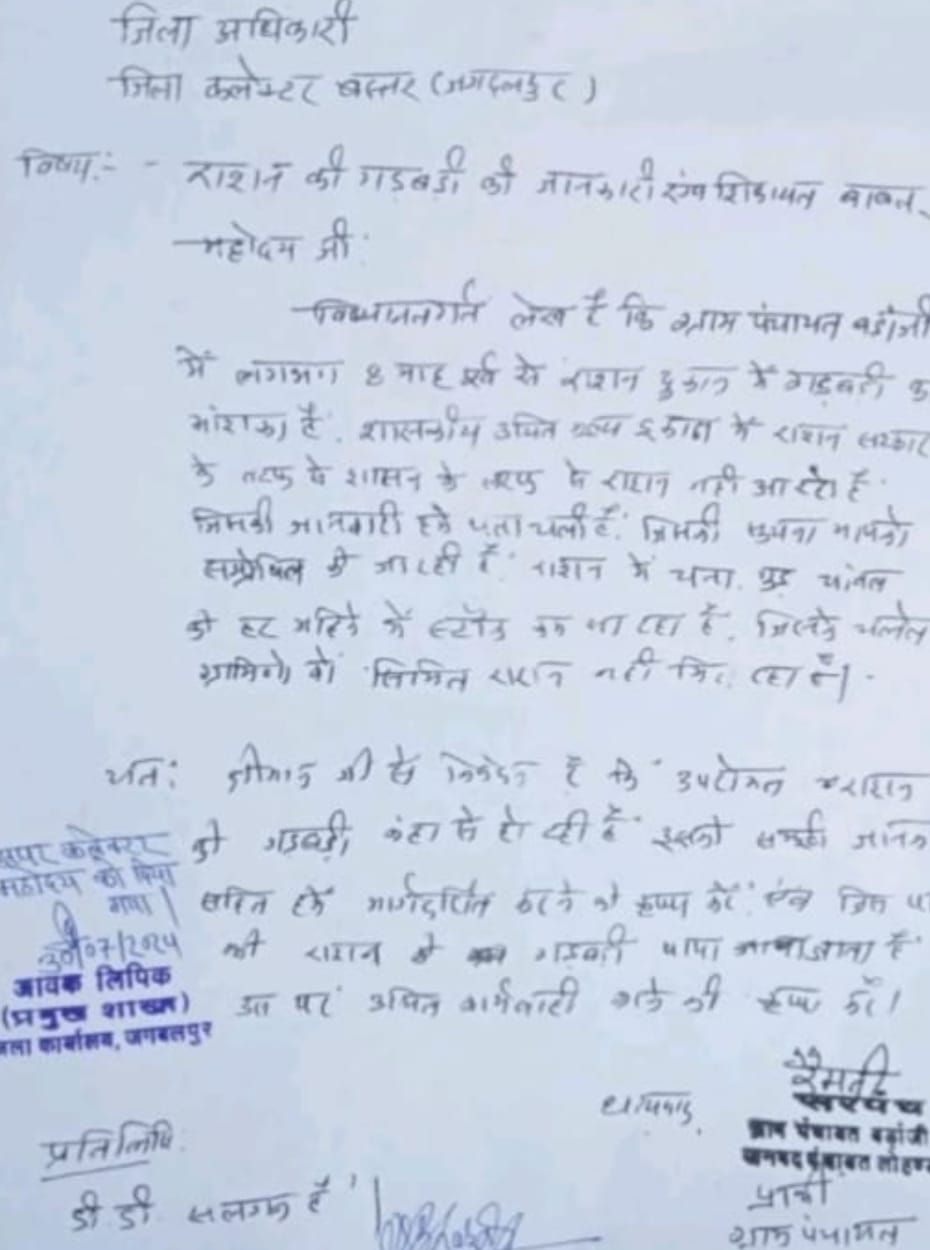 जिला अधिकारी
जिला कलेक्टर बस्तर (जगदलपुर)
विषय:- - राशन की गड़बड़ी की जानकारी एंव शिकायत बाबत्
महोदय जी:
लेख है कि ग्राम पंचायत बडांजी
में लगभग 8 माह पूर्व से राशन दुकान में गड़बड़ी क
आंशका है. शासकीय उचित मूल्य दुकान में राशन सरकार
के तरफ से शासन के तरफ से राशन नही आ रहा है.
जिसकी जानकारी हमें पता चली है. जिसकी सुचना आपको
सम्प्रेषित की जा रही है. राशन में चना. गुड़ चांवल
को हर महिने में स्टॉक जा रहा है. जिसके चलते
ग्रामिणों को राशन नही मिल रहा है|
अतः श्रीमान जी से निवेदन है कि उपरोक्त राशन
की गडबड़ी कंहा से हो रही है इसकी जानक
सहित हमें मार्गदर्शित करने की कृपा करें. एंव जिस प
की राशन की गडबडी पाया जाता है
उस पर उचित कार्यवाही करने की कृपा करें।
अपर कलेक्टर
महोदय को दिया
गया|
30/07/2024
आवक लिपिक
(प्रमुख शाखा)
जिला कार्यालय, जगदलपुर
धन्यवाद,
रैमती
सरपंच
ग्राम पंचायत बडांजी
जनपद पंचायत लोहण्ड
प्रार्थी
ग्राम पंचायत
प्रतिलिपि:
डी.डी. सलग्न है